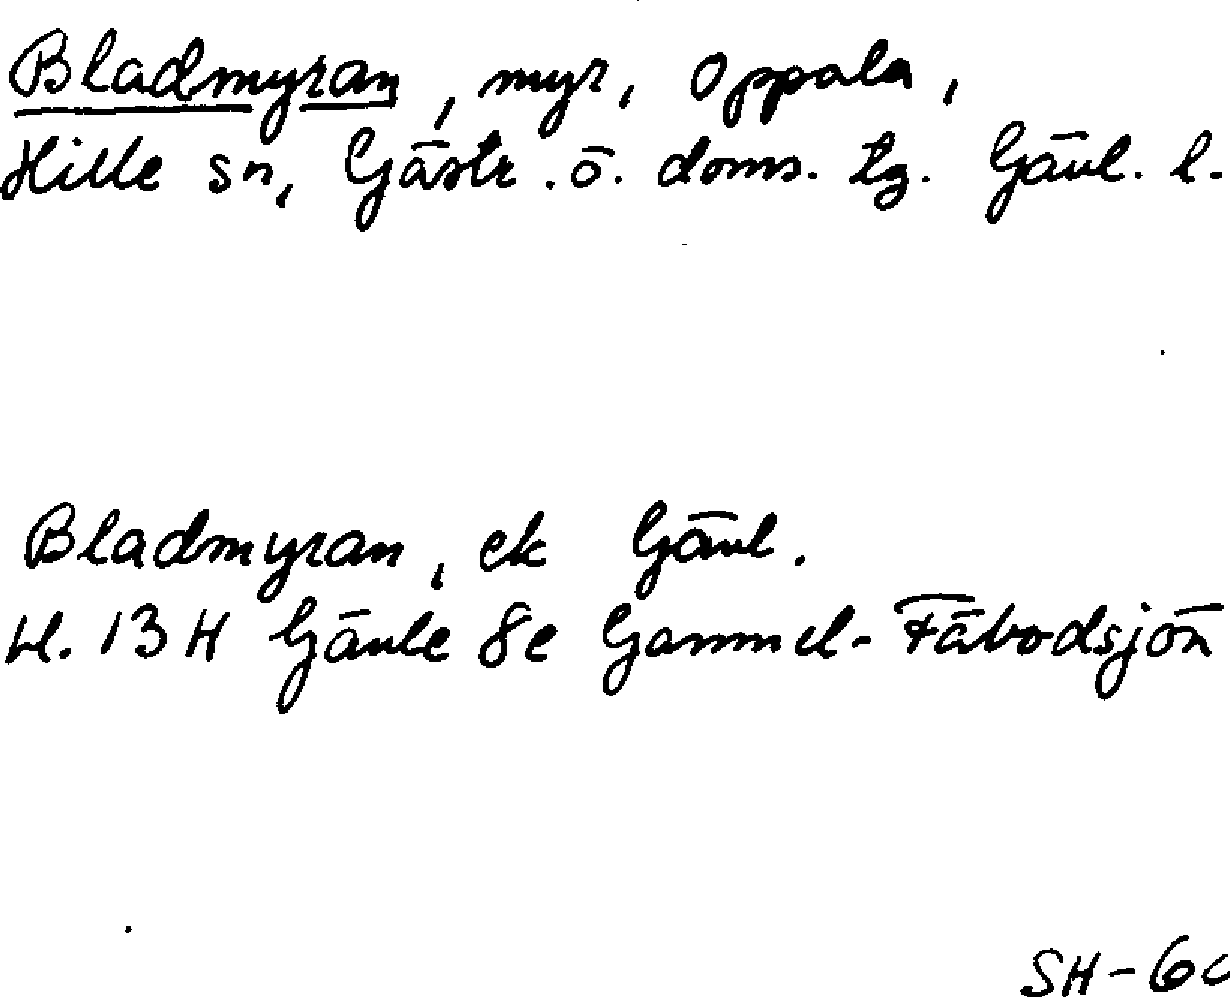 Bladmyran, myr, Oppala,
Hille sn, Gästr. ö. doms. tg. Gävl. l.
Bladmyran, ek Gävl.
bl. 13H Gävle 8e Gammel-Fäbodsjön
SH-60